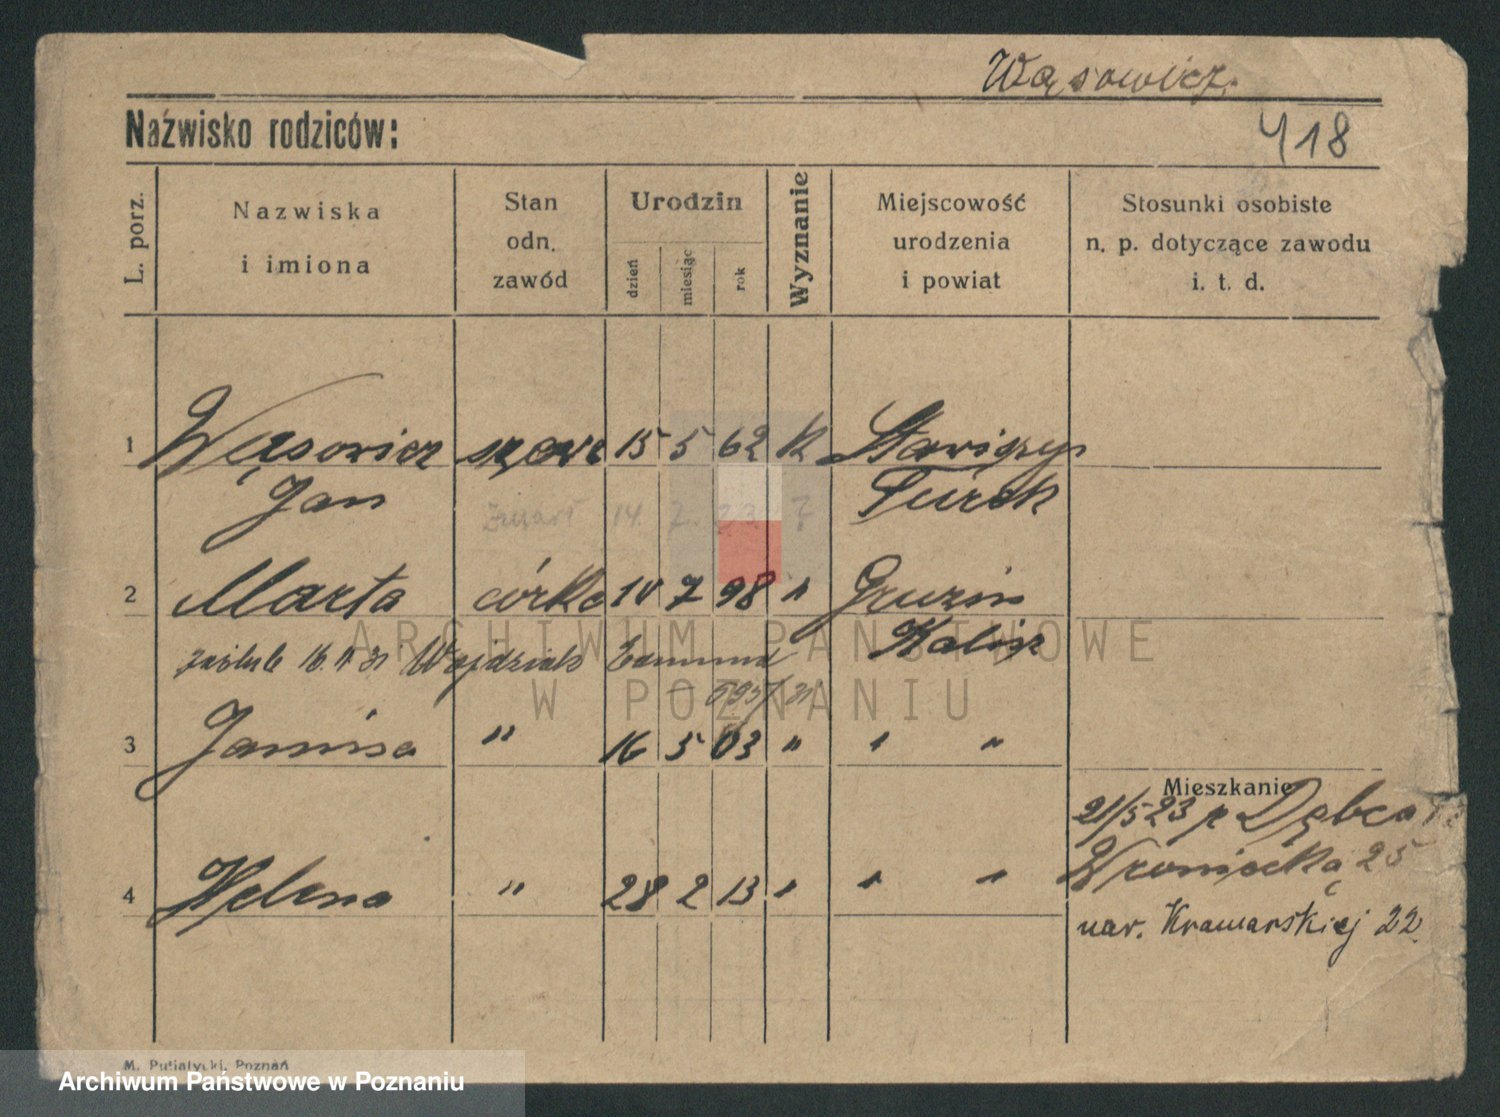 Wąsowicz.
Nazwisko rodziców:
418
L. porz.
Nazwiska
i imiona
Stan
odn.
zawód
Urodzin
dzień
miesiąc
rok
Wyznanie
Miejscowość
urodzenia
i powiat
Stosunki osobiste
n. p. dotyczące zawodu
i. t. d.
1 Wąsowicz szewc 15 5 62 k Stawiszyn
Jan Turek
Zmarł 14. 7. 23.
2 Marta córka 14 7 98 " Gruzin
Kalisz
zaślub 16.11.31 Wojdziak Edmund
3 Janina " 16 5 03 " " "
Mieszkanie
21/5 23 p Dębca
4 Helena " 28 2 13 " " "
Wroniecka 25
nar. Kramarskiej 22
M. Putiatycki, Poznań
ARCHIWUM PAŃSTWOWE
W POZNANIU
Archiwum Państwowe w Poznaniu